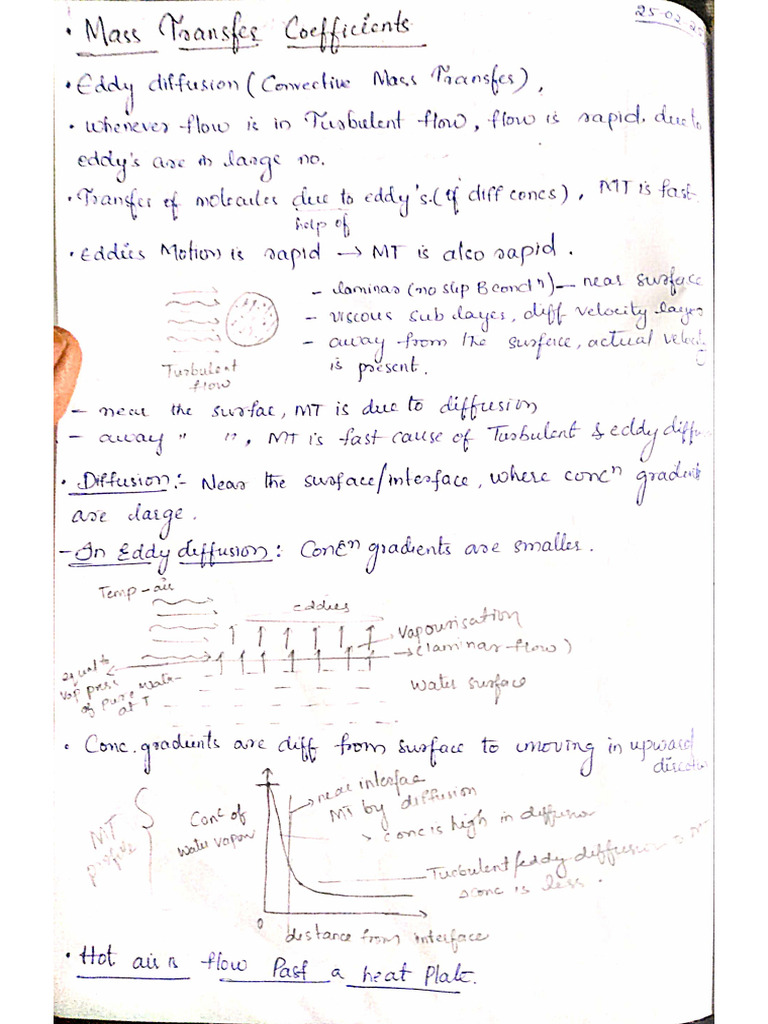 25-02-2
• Mass Transfer Coefficients
• Eddy diffusion (Convective Mass Transfer),
• whenever flow is in Turbulent flow, flow is rapid. due to
eddy's are in large no.
• Transfer of molecules due to eddy's. (of diff concs), MT is fast
help of
• Eddies Motion is rapid → MT is also rapid.
- laminar (no slip B condⁿ) - near surface
- viscous sub layer, diff velocity layer
- away from the surface, actual veloci
is present.
Turbulent
flow
- near the surfac, MT is due to diffusion
- away " ", MT is fast cause of Turbulent & eddy diffu
• Diffusion:- Near the surface/interface, where concⁿ gradient
are large.
- In Eddy diffusion: Concⁿ gradients are smaller.
Temp - air
eddies
Vapourisation
(laminar flow)
equal to
vap press
of pure water
at T
water surface
• Conc. gradients are diff from surface to moving in upward
direction
MT
profile
Conc of
water vapour
near interfac
MT by diffusion
conc is high in diffusion
Turbulent/eddy diffusion → MT
conc is less.
0
distance from interface
• Hot air is flow Past a heat Plate.